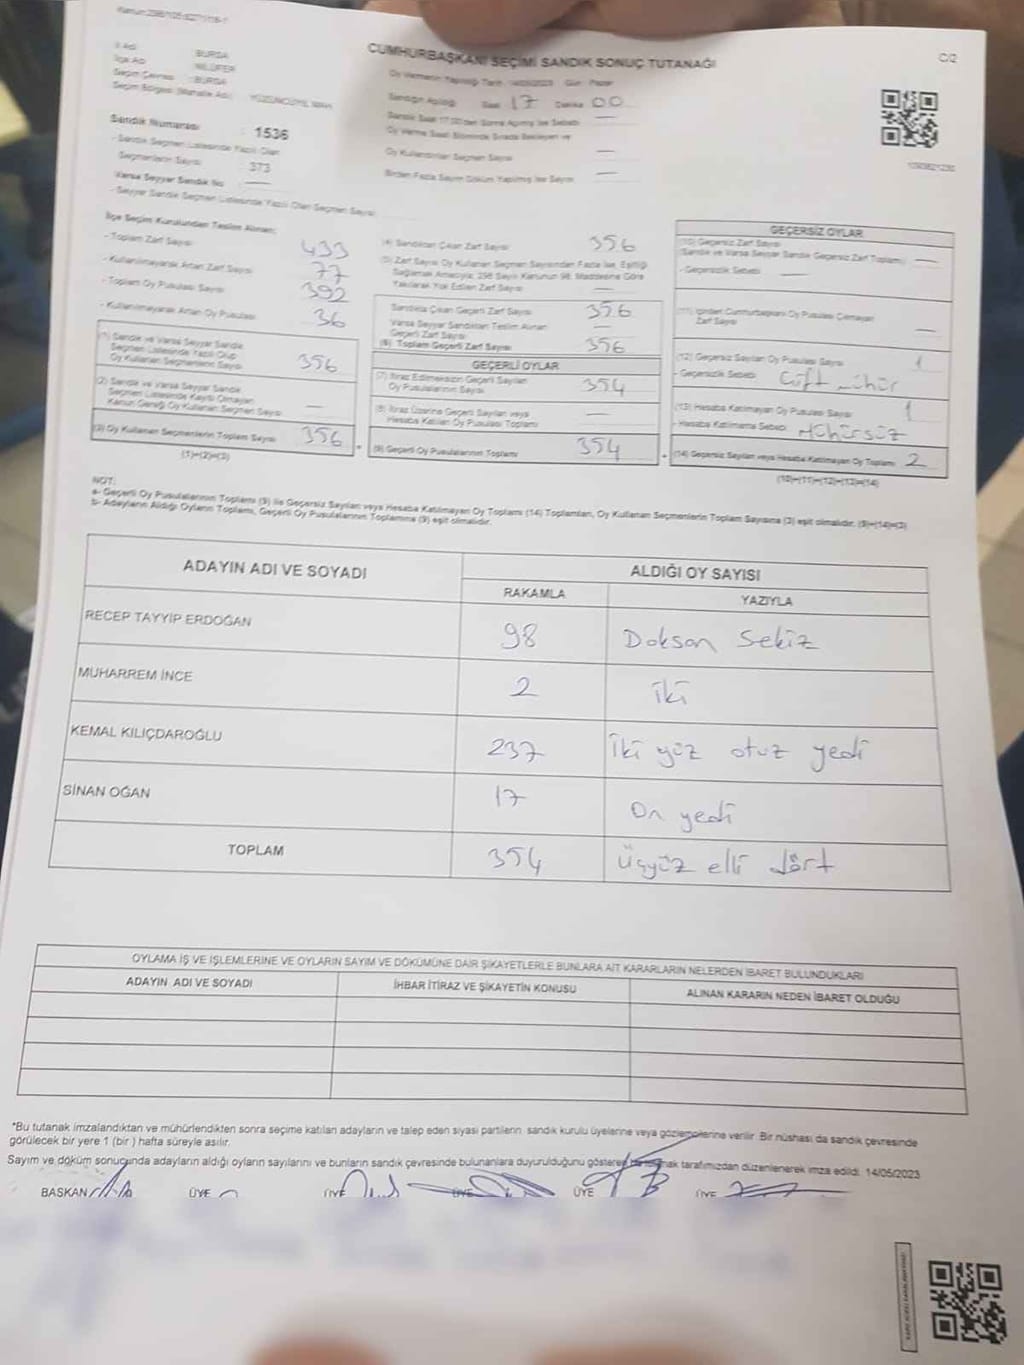 CUMHURBAŞKANI SEÇİMİ SANDIK SONUÇ TUTANAĞI
C/2
İl Adı : BURSA
İlçe Adı : NİLÜFER
Seçim Çevresi : BURSA
Seçim Bölgesi (Mahalle Adı) : YÜZÜNCÜYIL MAH.
Oy Vermenin Yapıldığı Tarih : 14/05/2023 Gün : Pazar
Sandığın Açıldığı Saat 17 Dakika 00
Sandık Numarası : 1536
- Sandık Seçmen Listesinde Yazılı Olan
Seçmenlerin Sayısı : 373
Varsa Seyyar Sandık No —
- Seyyar Sandık Seçmen Listesinde Yazılı Olan Seçmen Sayısı
Sandık Saat 17.00'den Sonra Açılmış İse Sebebi —
Oy Verme Saati Bitiminde Sırada Bekleyen ve
Oy Kullandırılan Seçmen Sayısı —
Birden Fazla Sayım Döküm Yapılmış İse Sayısı —
İlçe Seçim Kurulundan Teslim Alınan;
- Toplam Zarf Sayısı 433
- Kullanılmayarak Artan Zarf Sayısı 77
- Toplam Oy Pusulası Sayısı 392
- Kullanılmayarak Artan Oy Pusulası 36
(1) Sandık ve Varsa Seyyar Sandık
Seçmen Listesinde Yazılı Olup
Oy Kullanan Seçmenlerin Sayısı 356
(2) Sandık ve Varsa Seyyar Sandık
Seçmen Listesinde Kaydı Olmayan
Kanun Gereği Oy Kullanan Seçmen Sayısı —
(3) Oy Kullanan Seçmenlerin Toplam Sayısı 356
(1)+(2)=(3)
(4) Sandıktan Çıkan Zarf Sayısı 356
(5) Zarf Sayısı Oy Kullanan Seçmen Sayısından Fazla İse, Eşitliği
Sağlamak Amacıyla; 298 Sayılı Kanunun 98. Maddesine Göre
Yakılarak Yok Edilen Zarf Sayısı —
Sandıkta Çıkan Geçerli Zarf Sayısı 356
Varsa Seyyar Sandıktan Teslim Alınan
Geçerli Zarf Sayısı —
(6) Toplam Geçerli Zarf Sayısı 356
GEÇERLİ OYLAR
(7) İtiraz Edilmeksizin Geçerli Sayılan
Oy Pusulalarının Sayısı 354
(8) İtiraz Üzerine Geçerli Sayılan veya
Hesaba Katılan Oy Pusulası Toplamı —
(9) Geçerli Oy Pusulalarının Toplamı 354
GEÇERSİZ OYLAR
(10) Geçersiz Zarf Sayısı
(Sandık ve Varsa Seyyar Sandık Geçersiz Zarf Toplamı) —
- Geçersizlik Sebebi —
(11) İçinden Cumhurbaşkanı Oy Pusulası Çıkmayan
Zarf Sayısı —
(12) Geçersiz Sayılan Oy Pusulası Sayısı 1
- Geçersizlik Sebebi Çift mühür
(13) Hesaba Katılmayan Oy Pusulası Sayısı 1
- Hesaba Katılmama Sebebi Mühürsüz
(14) Geçersiz Sayılan veya Hesaba Katılmayan Oy Toplamı 2
(10)+(11)+(12)+(13)=(14)
NOT:
a- Geçerli Oy Pusulalarının Toplamı (9) ile Geçersiz Sayılan veya Hesaba Katılmayan Oy Toplamı (14) Toplamları, Oy Kullanan Seçmenlerin Toplam Sayısına (3) eşit olmalıdır. (9)+(14)=(3)
b- Adayların Aldığı Oyların Toplamı, Geçerli Oy Pusulalarının Toplamına (9) eşit olmalıdır.
ADAYIN ADI VE SOYADI
ALDIĞI OY SAYISI
RAKAMLA YAZIYLA
RECEP TAYYİP ERDOĞAN 98 Doksan sekiz
MUHARREM İNCE 2 iki
KEMAL KILIÇDAROĞLU 237 iki yüz otuz yedi
SİNAN OĞAN 17 On yedi
TOPLAM 354 Üçyüz elli dört
OYLAMA İŞ VE İŞLEMLERİNE VE OYLARIN SAYIM VE DÖKÜMÜNE DAİR ŞİKAYETLERLE BUNLARA AİT KARARLARIN NELERDEN İBARET BULUNDUKLARI
ADAYIN ADI VE SOYADI İHBAR İTİRAZ VE ŞİKAYETİN KONUSU ALINAN KARARIN NEDEN İBARET OLDUĞU
*Bu tutanak imzalandıktan ve mühürlendikten sonra seçime katılan adayların ve talep eden siyasi partilerin, sandık kurulu üyelerine veya gözlemcilerine verilir. Bir nüshası da sandık çevresinde
görülecek bir yere 1 (bir ) hafta süreyle asılır.
Sayım ve döküm sonucunda adayların aldığı oyların sayılarını ve bunların sandık çevresinde bulunanlara duyurulduğunu gösteren bu tutanak tarafımızdan düzenlenerek imza edildi. 14/05/2023
BAŞKAN ÜYE ÜYE ÜYE ÜYE ÜYE